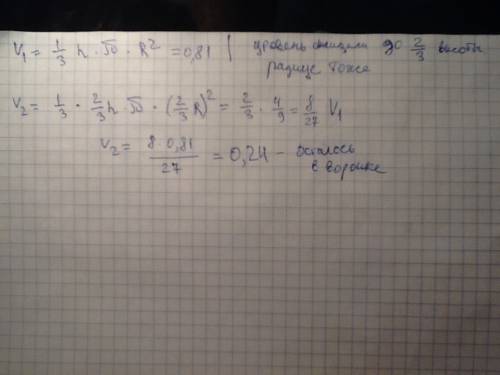 V₁ = 1/3 h · π · R² = 0,81 | уровень жидкости до 2/3 высоты
радиус тоже
V₂ = 1/3 · 2/3 h π · (2/3 R)² = 2/3 · 4/9 = 8/27 V₁
V₂ = 8 · 0,81 / 27 = 0,24 - осталось
в воронке